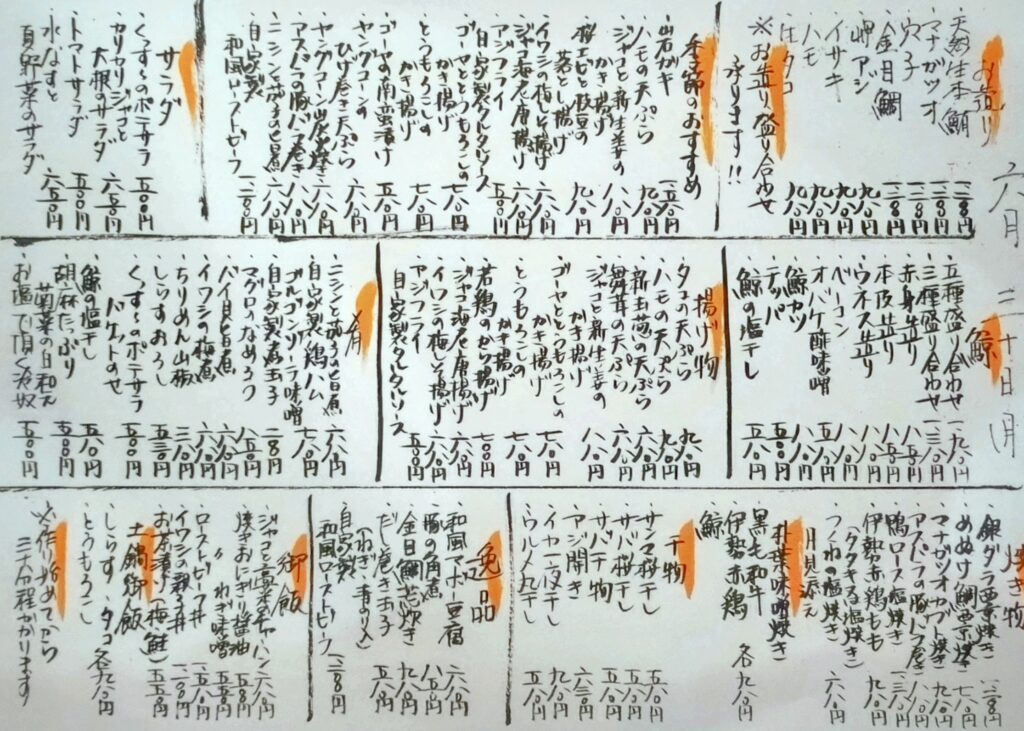 六月三十日(月)
お造り
・天然生本鮪 一二八〇円
・マナガツオ 一二八〇円
・穴子 一二八〇円
・金目鯛 一二八〇円
・岬アジ 九八〇円
・イサキ 九八〇円
・ハモ 九八〇円
・生タコ 九八〇円
※お造り盛り合わせ
承ります!!
季節のおすすめ
・岩ガキ
・ハモの天ぷら 九八〇円
・ジャコと新生姜の
かき揚げ 八八〇円
・桜エビと枝豆の
落とし揚げ 九八〇円
・イワシの梅しそ揚げ 六八〇円
・ジャコ海老唐揚げ 六八〇円
・アジフライ
自家製タルタルソース 五五〇円
・ゴーヤととうもろこしの
かき揚げ 七八〇円
・とうもろこしの
かき揚げ 七八〇円
・ゴーヤの南蛮漬け
・ヤングコーンの
ひげ巻き天ぷら 六八〇円
・ヤングコーン岩塩焼き 六八〇円
・アスパラの豚バラ巻き 八八〇円
・自家製
和風ローストビーフ
サラダ
・くずし〜のポテサラ 五〇〇円
・カリカリジャコと
大根のサラダ 六五〇円
・トマトサラダ 五〇〇円
・水なすと
夏野菜のサラダ 六五〇円
鯨
・五種盛り合わせ 一九八〇円
・三種盛り合わせ 一三八〇円
・赤身造り
・本皮造り
・ウネス造り
・ベーコン
・オバケ酢味噌
・鯨カツ
・テッパ
・鯨の塩干し 五八〇円
揚げ物
・タコの天ぷら 九八〇円
・ハモの天ぷら 九八〇円
・新玉葱の天ぷら 六八〇円
・舞茸の天ぷら 六八〇円
・ジャコと新生姜の
かき揚げ 八八〇円
・ゴーヤととうもろこしの
かき揚げ 七八〇円
・とうもろこしの
かき揚げ 七八〇円
・若鶏のから揚げ 七〇〇円
・ジャコ海老唐揚げ 六八〇円
・イワシの梅しそ揚げ 六八〇円
・アジフライ
自家製タルタルソース 五五〇円
肴
・ニシンと茄子の旨煮 六八〇円
・自家製 鶏ハム 七八〇円
・ゴルゴンゾーラ味噌
・自家製煮玉子
・マグロのなめろう 八五〇円
・バイ貝旨煮 六八〇円
・イワシの梅煮 六八〇円
・ちりめん山椒 三八〇円
・しらすおろし 五五〇円
・くずし〜のポテサラ
バケットのせ 五〇〇円
・鯨の塩干し 五八〇円
・胡麻たっぷり
菊菜の白和え 五〇〇円
・お塩で頂く冷奴 五〇〇円
焼き物
・銀ダラ西京焼き 一二八〇円
・めぬけ鯛西京焼き 七八〇円
・マナガツオカブト焼き 九八〇円
・アスパラの豚トロ巻き
・鴨ロース塩焼き 一三八〇円
・伊勢赤鶏もも
(タタキ or 塩焼き) 九八〇円
・つくねの塩焼き
月見添え 六八〇円
朴葉味噌焼き
・黒毛和牛
・伊勢赤鶏
・鯨 各九八〇円
干物
・サンマ桜干し 五八〇円
・サバ桜干し 五八〇円
・サバ干物
・アジ開き
・イカ一夜干し
・ウルメ丸干し 五八〇円
逸品
・和風マーボー豆腐 六八〇円
・豚の角煮 八五〇円
・金目鯛あら炊き 九八〇円
・だし巻き玉子
(ねぎ、青のり入) 五八〇円
・自家製
和風ローストビーフ
御飯
・ジャコと高菜のチャーハン 六八〇円
・焼きおにぎり 醤油
〃 ねぎ味噌
・ローストビーフ丼
・イワシの親子丼
・お茶漬け(梅、鮭) 五五〇円
土鍋御飯
・しらす ・タコ
・とうもろこし 各九八〇円
※作り始めてから
三十分程かかります